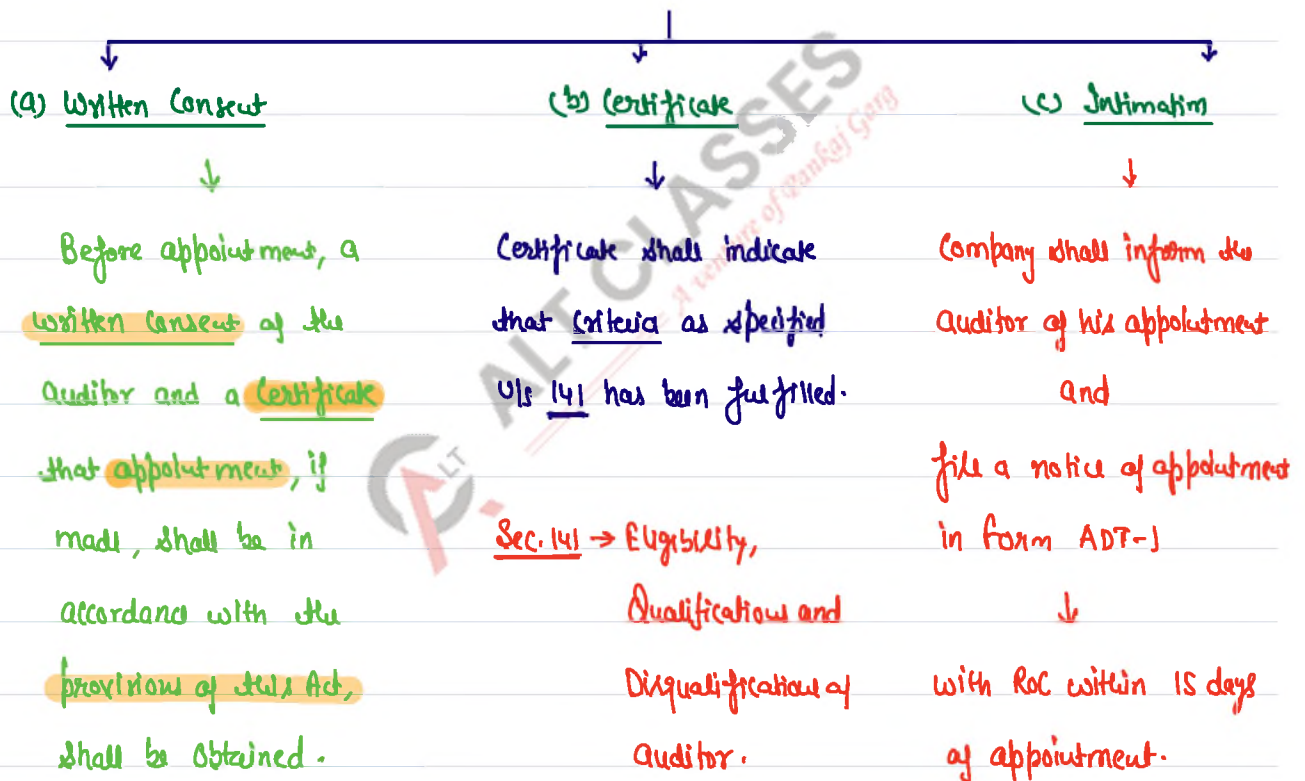 (a) Written Consent
Before appointment, a
written consent of the
auditor and a certificate
that appointment, if
made, shall be in
accordance with the
provisions of this Act,
shall be obtained.
(b) Certificate
Certificate shall indicate
that criteria as specified
U/s 141 has been fulfilled.
Sec. 141 → Eligibility,
Qualifications and
Disqualifications of
auditor.
(c) Intimation
Company shall inform the
auditor of his appointment
and
file a notice of appointment
in form ADT-1
with RoC within 15 days
of appointment.
ALT CLASSES
A venture of Pankaj Garg
ALT